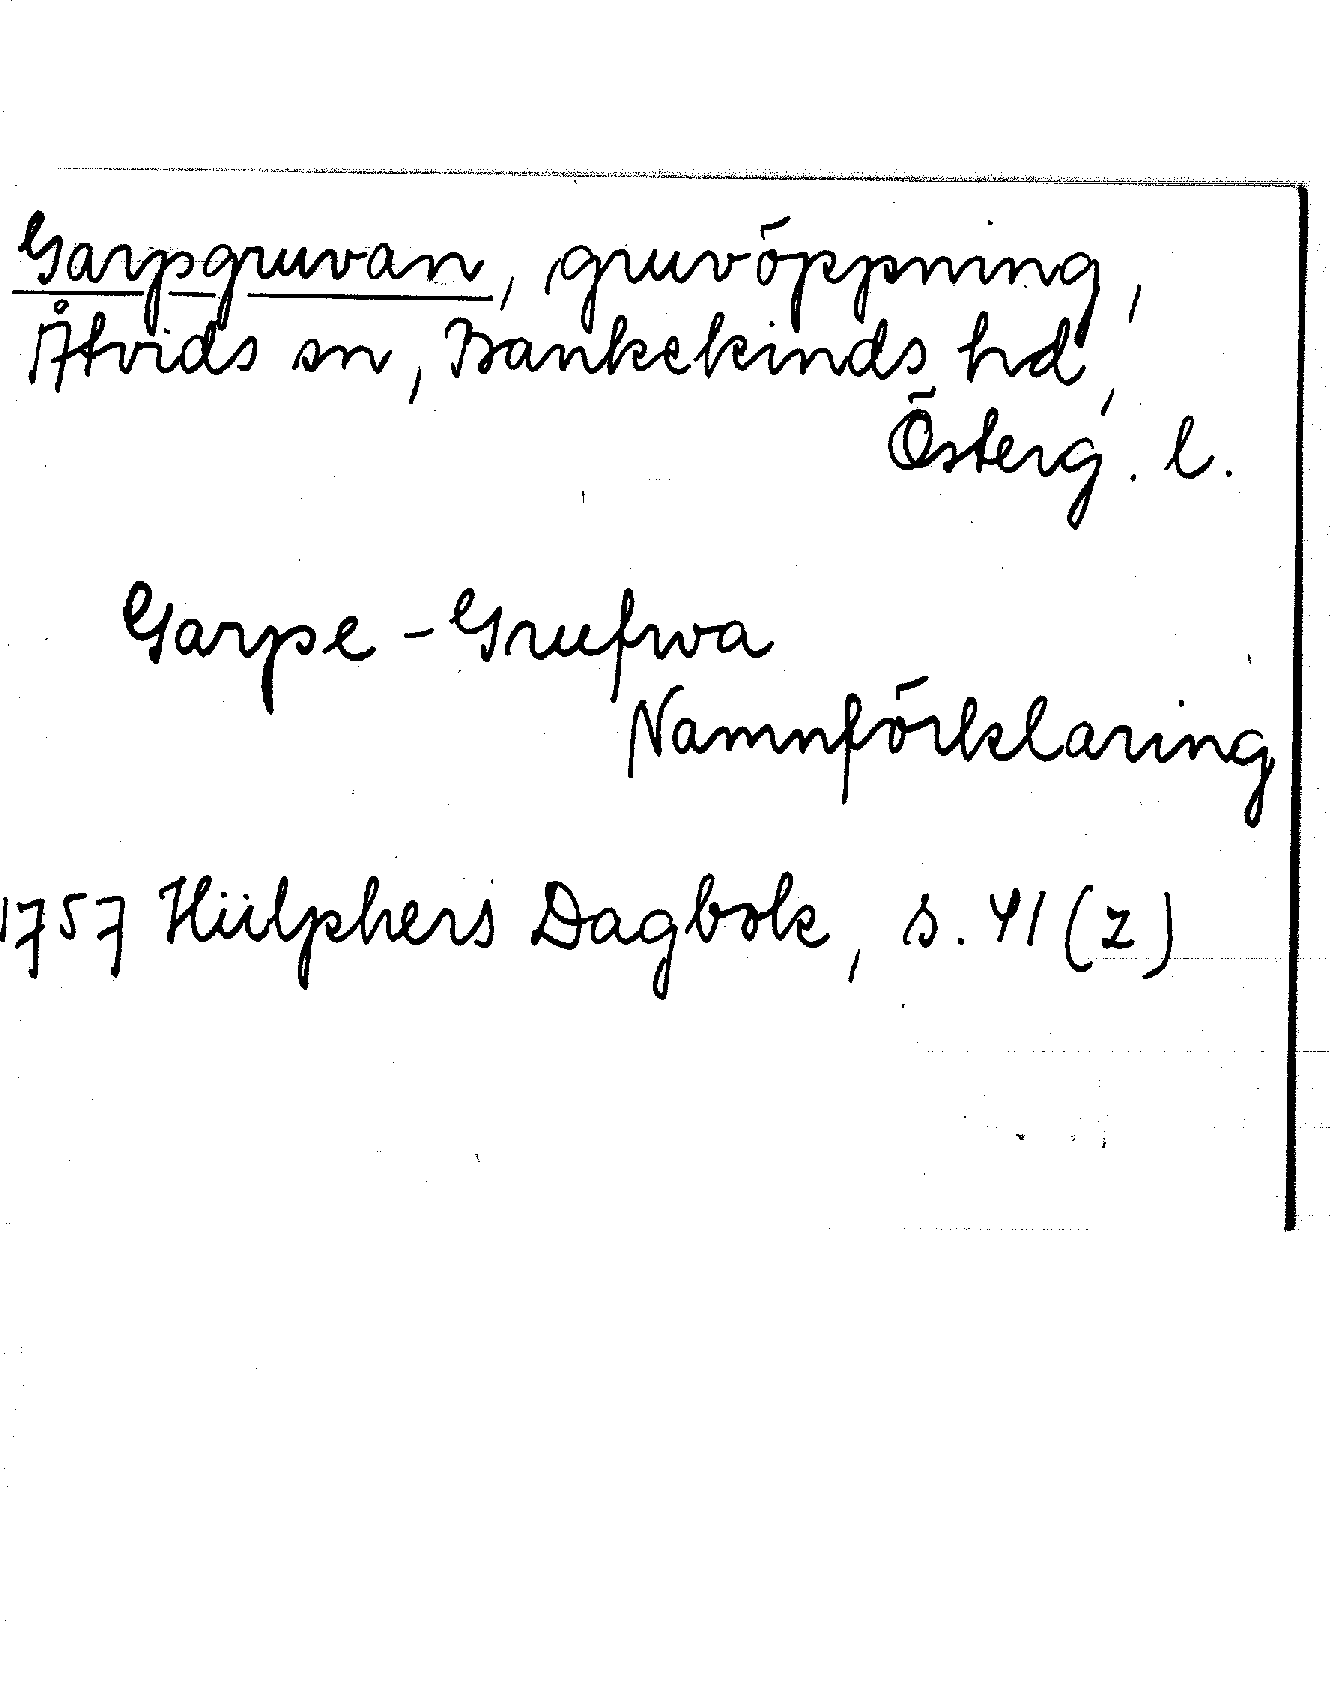 Garpgruvan, gruvöppning,
Åtvids sn, Bankekinds hd,
Österg. l.
Garpe-Grufwa
Namnförklaring
1757 Hülphers Dagbok, s. 41 (z)